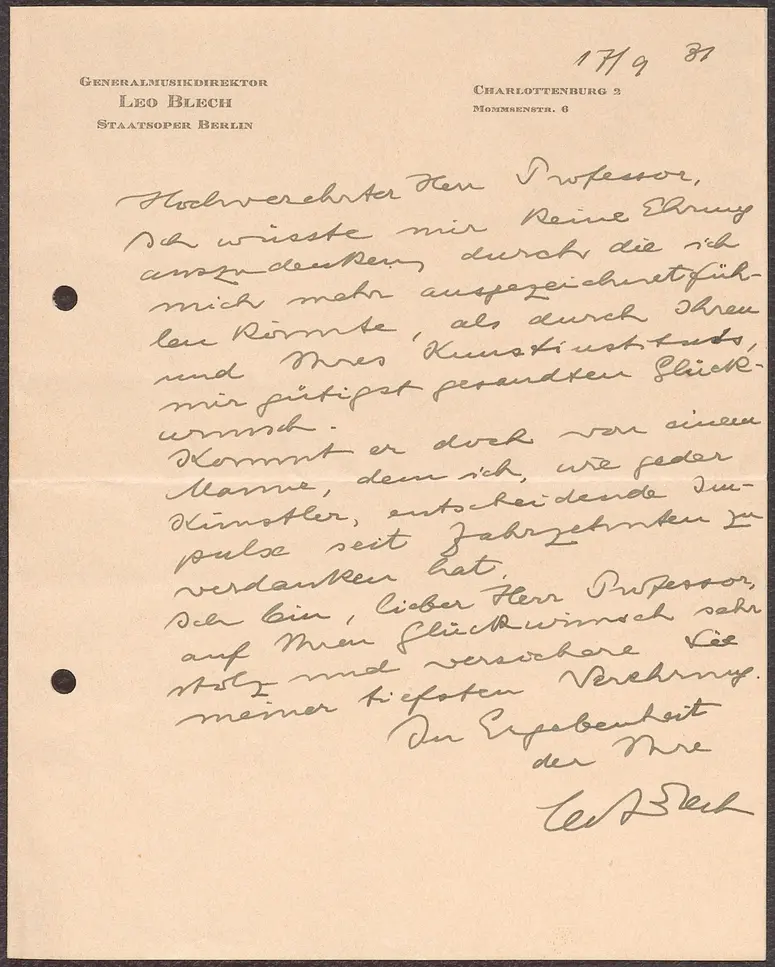 17/9 31
GENERALMUSIKDIREKTOR
LEO BLECH
STAATSOPER BERLIN
CHARLOTTENBURG 2
MOMMSENSTR. 6
Hochverehrter Herr Professor,
Ich wüsste mir keine Ehrung
auszudenken, durch die ich
mich mehr ausgezeichnet füh-
len könnte, als durch Ihren
und Ihres Kunstinstituts,
mir gütigst gesandten Glück-
wunsch.
Kommt er doch von einem
Manne, dem ich, wie jeder
Künstler, entscheidende Im-
pulse seit Jahrzehnten zu
verdanken hat.
Ich bin, lieber Herr Professor,
auf Ihren Glückwunsch sehr
stolz und versichere Sie
meiner tiefsten Verehrung.
In Ergebenheit
der Ihre
Leo Blech